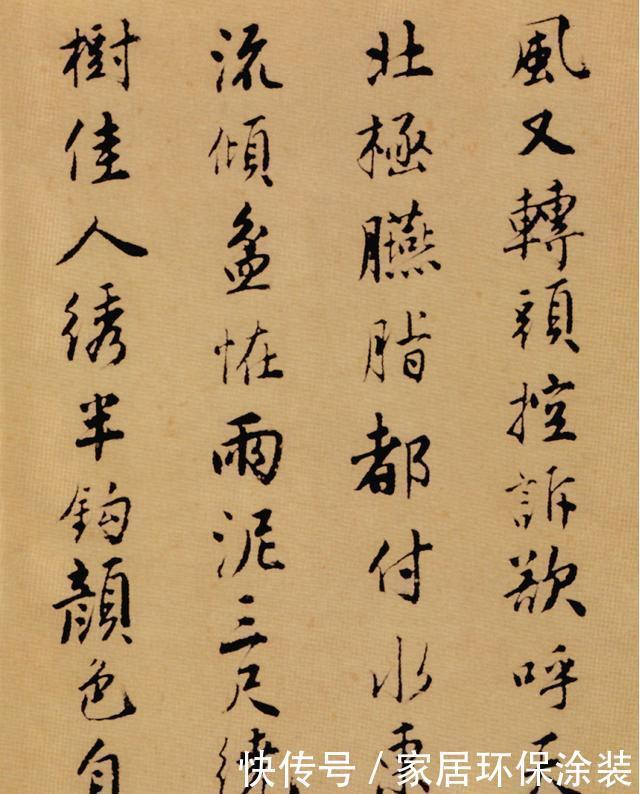 風又轉頭控訴欲呼天
北極臙脂都付水東
流傾盆恠雨泥三尺繞
樹佳人綉半鈎顏色自
快传号 / 家居环保涂装